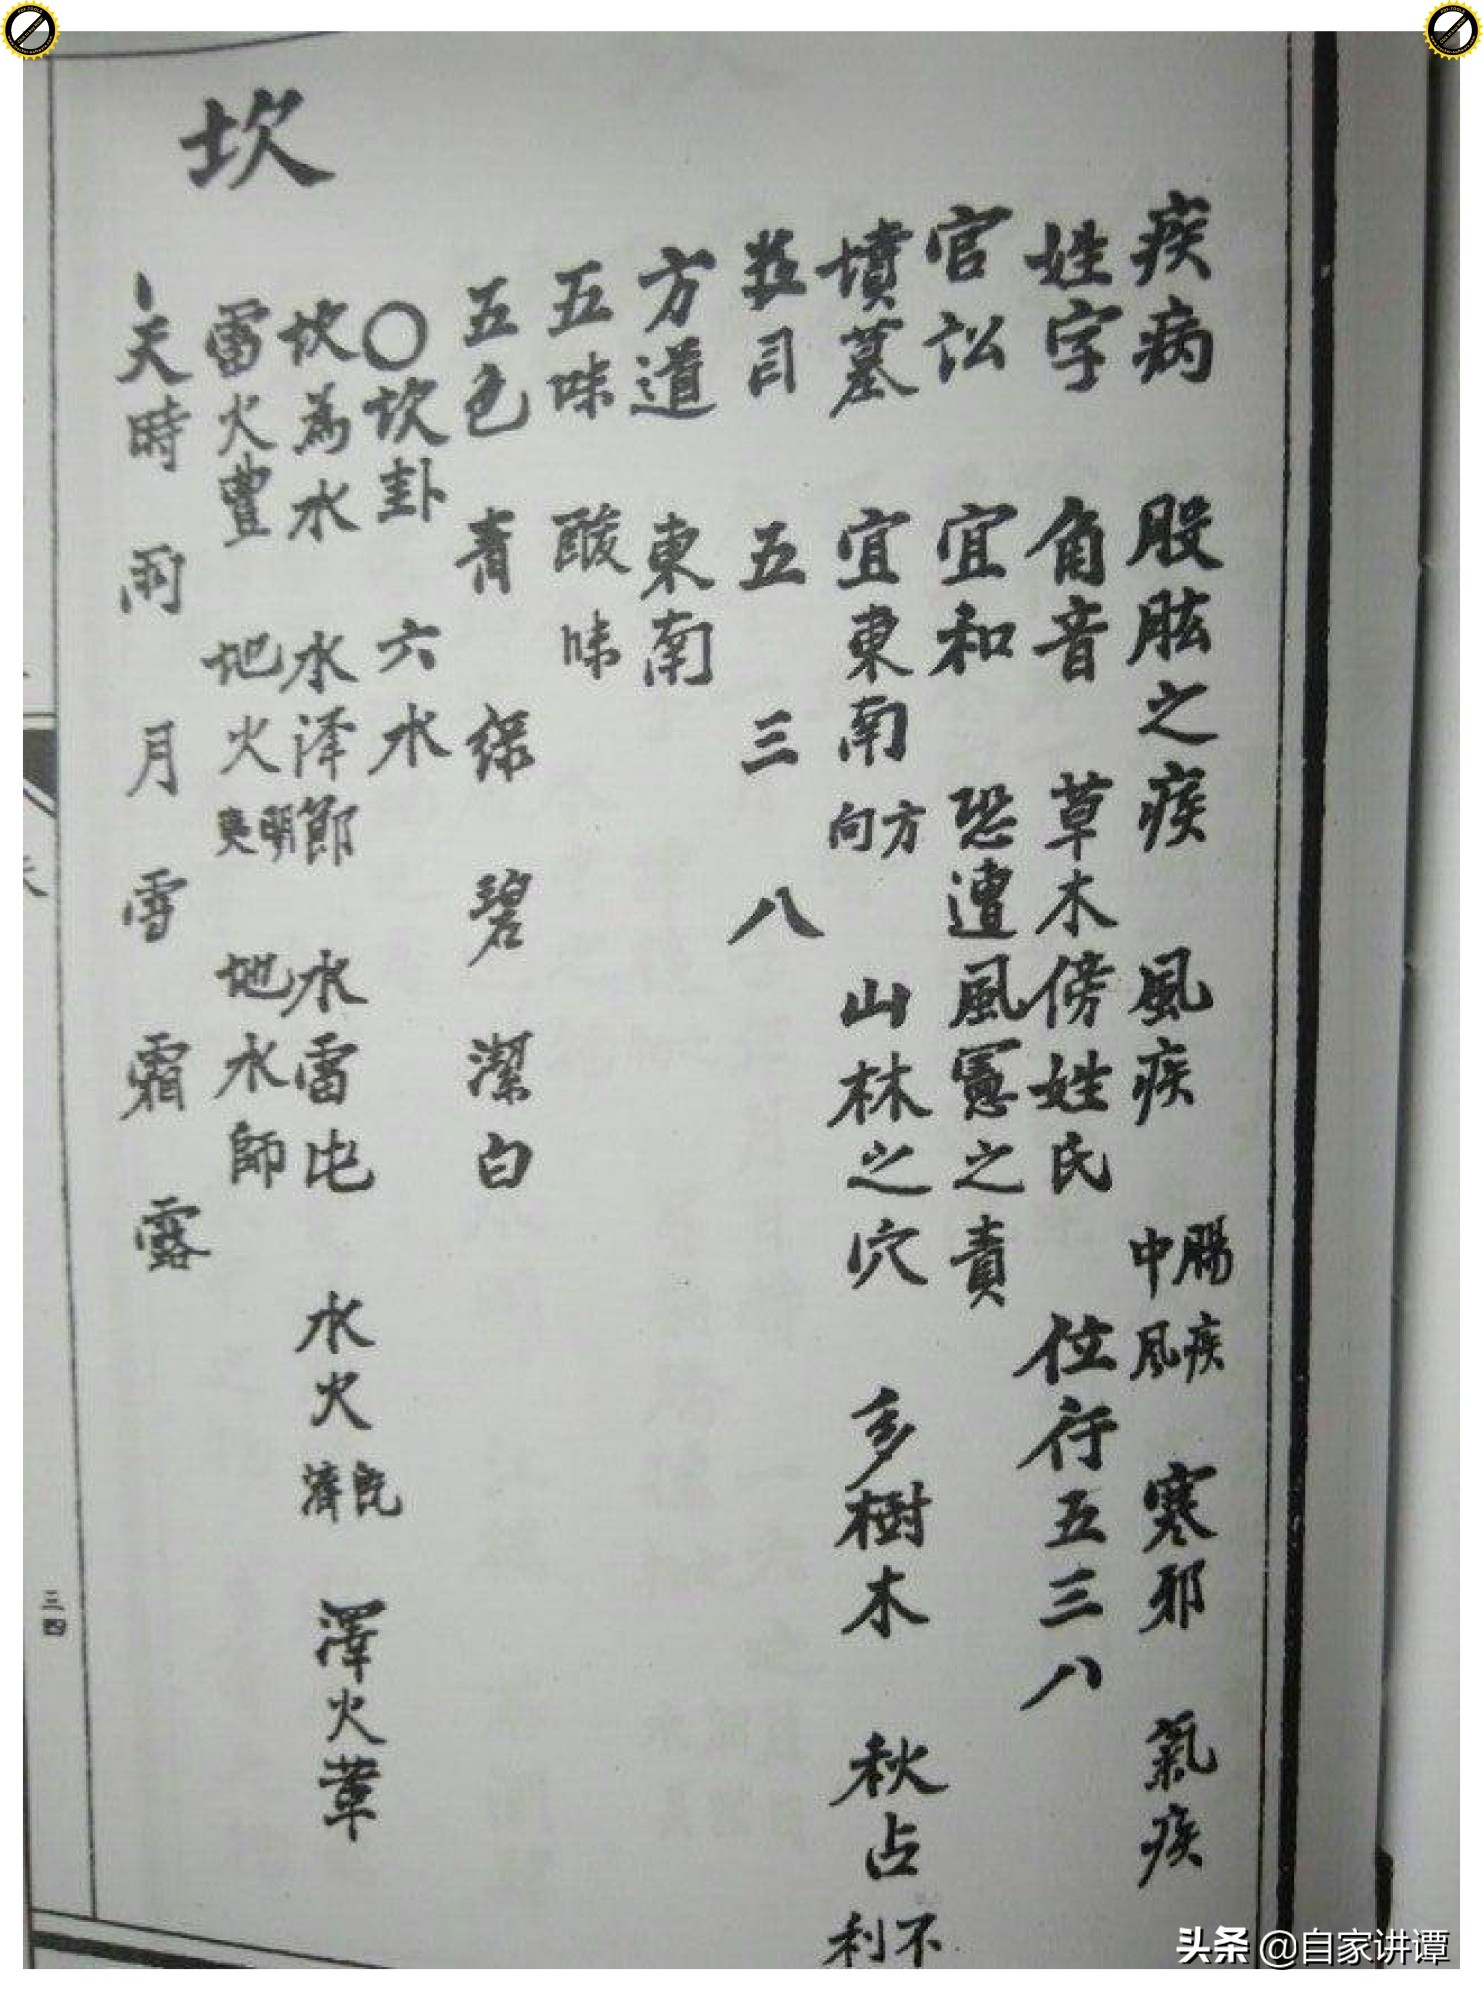 疾病 股肱之疾 風疾 腸疾中風 寒邪 氣疾
姓字 角音 草木傍姓氏 位行五三八
官訟 宜和 恐遭風憲之責
墳墓 宜東南方向 山林之穴 多樹木 秋占不利
数目 五 三 八
方道 東南
五味 酸味
五色 青 綠 碧 潔白
〇坎卦 六水
坎為水 水泽節 水雷屯 水火既濟 澤火革
雷火豐 地火明夷 地水師
坎
天時 雨 月 雪 霜 露
三四
头条 @自家讲谭